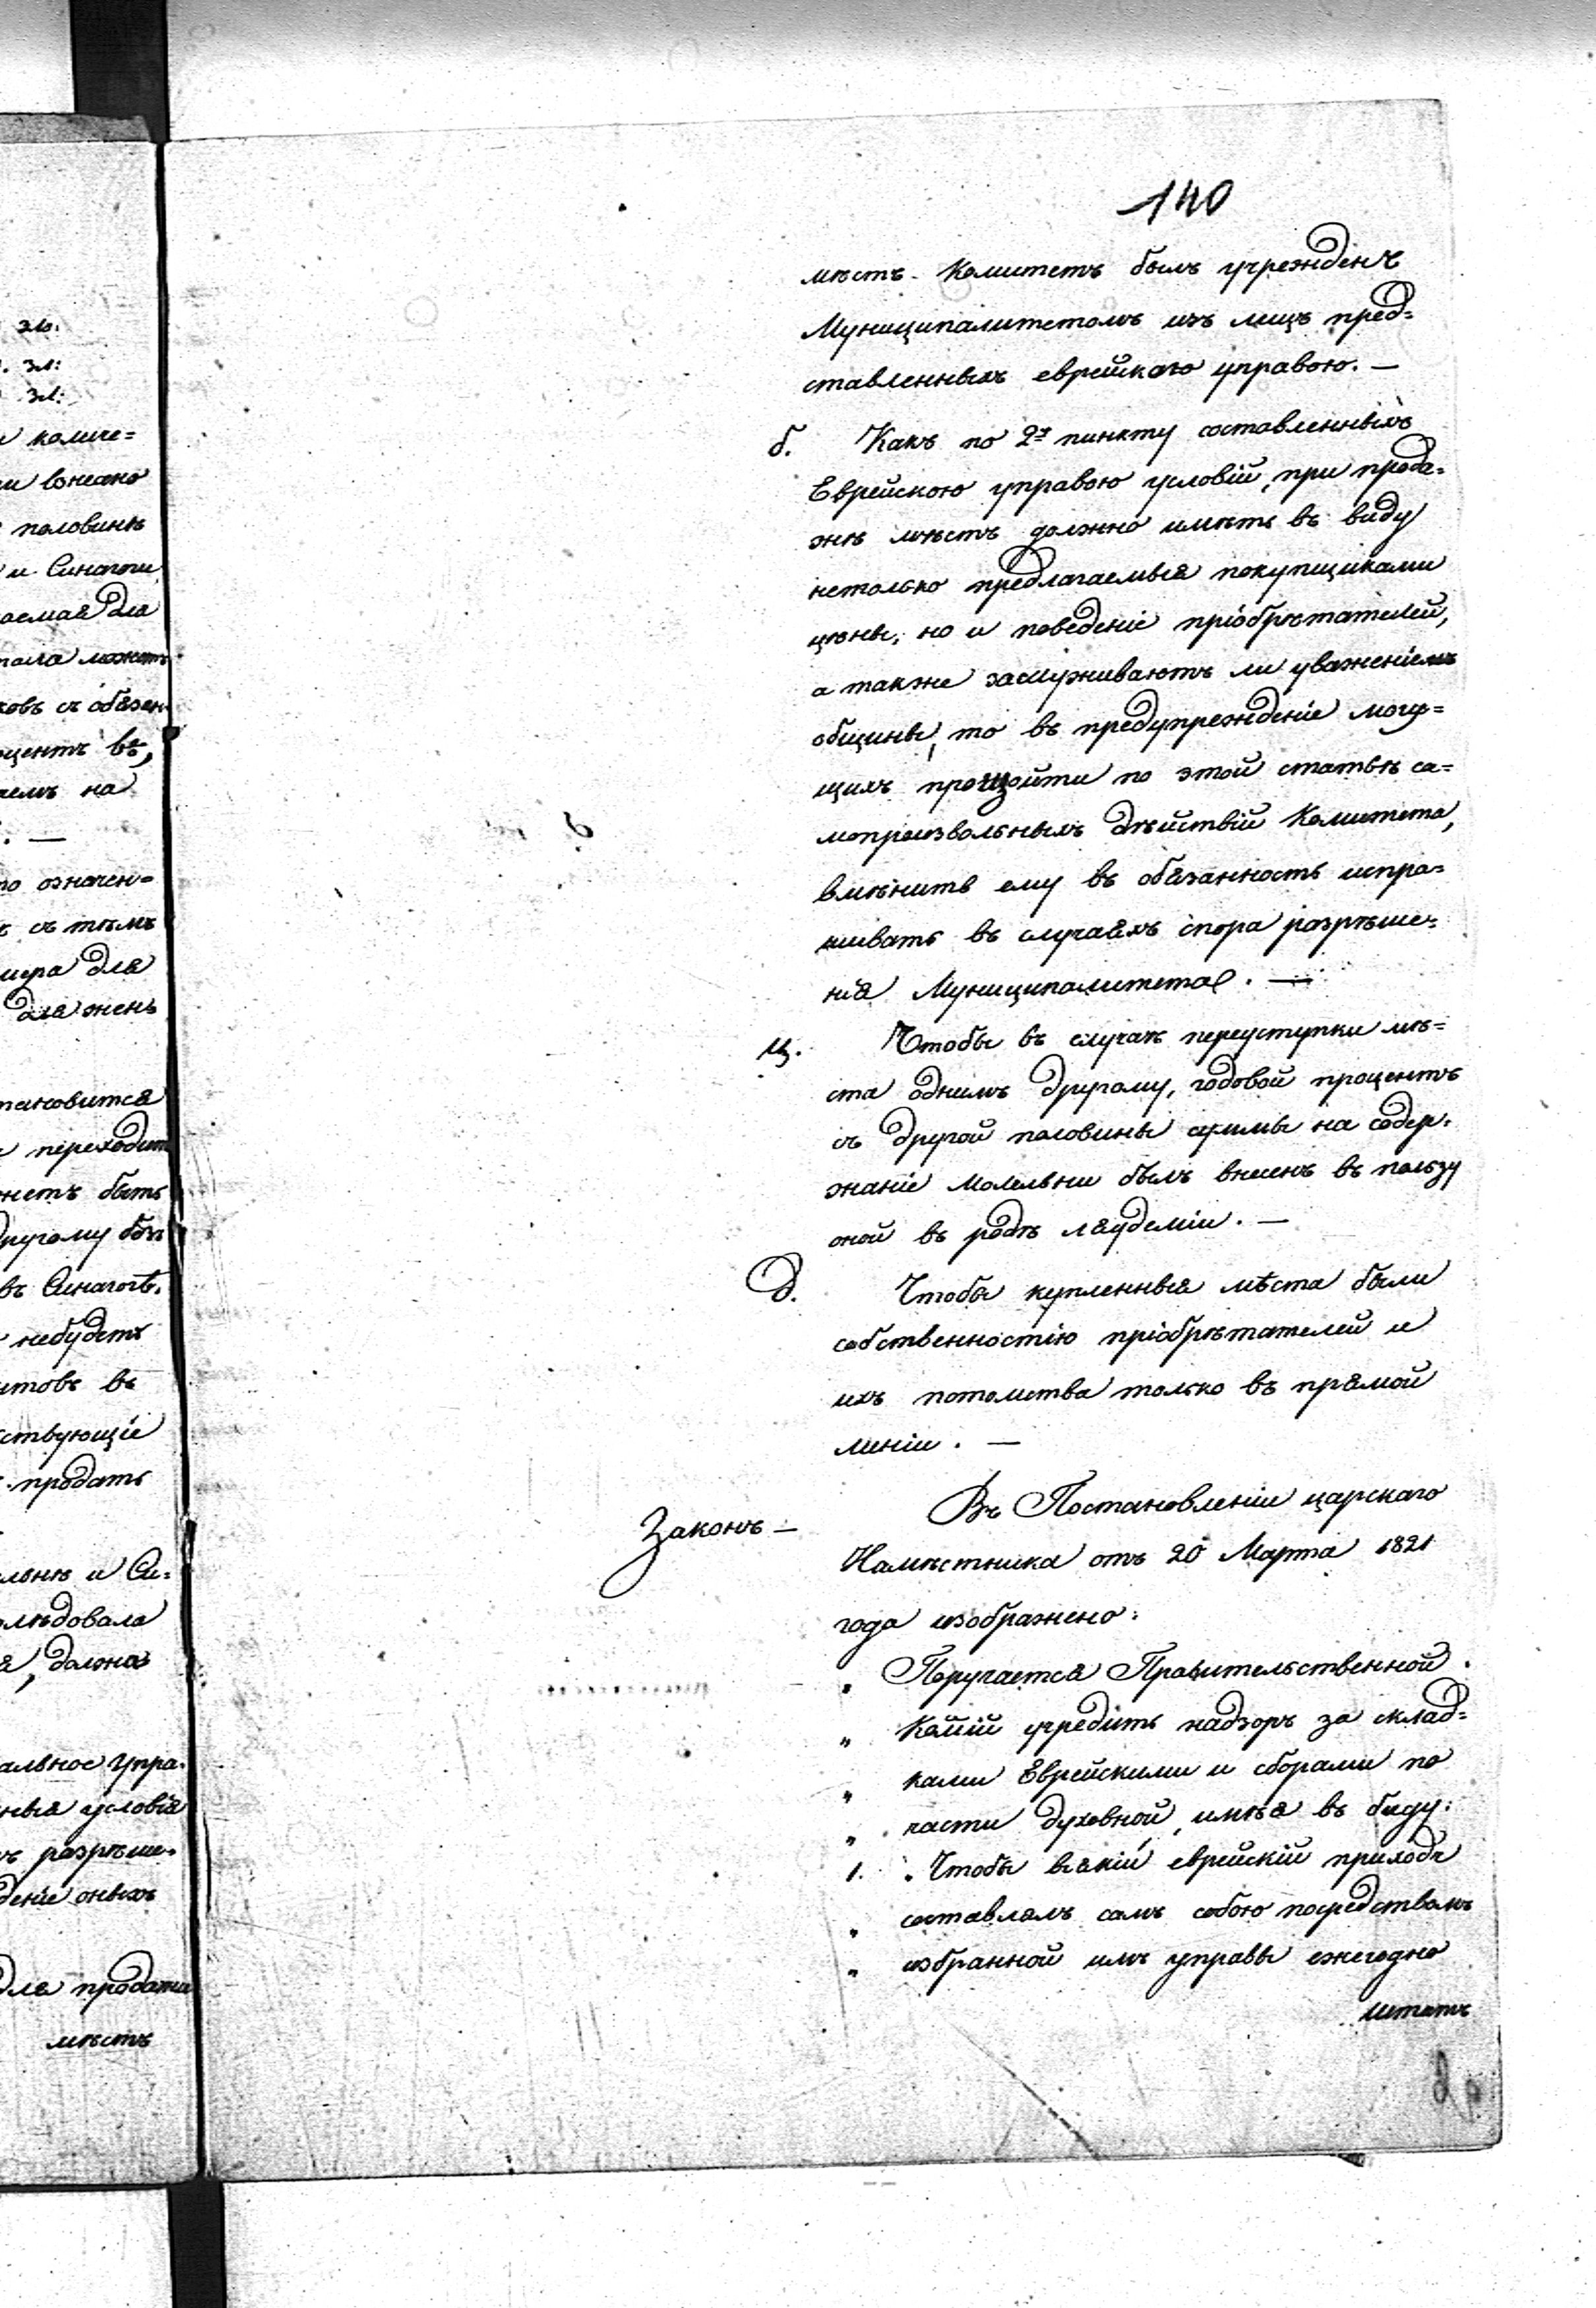 140
мѣстъ. Комитетъ былъ учрежденъ
Муниципалитетомъ изъ лицъ пред=
ставленныхъ еврейскаго управою. —
б. Какъ по 2му пункту составленныхъ
Еврейскою управою условій, при прода=
жѣ мѣстъ должно имѣть въ виду
нетолько предлагаемыя покупщиками
цѣны, но и поведеніе пріобрѣтателей,
а также заслуживаютъ ли уваженіемъ
общины, то въ предупрежденіе могу=
щихъ произойти по этой статьѣ са=
мопроизвольныхъ дѣйствій Комитета,
вмѣнить ему въ обязанность испра=
шивать въ случаяхъ спора разрѣше=
нія Муниципалитета. —
ц. Чтобы въ случаѣ переуступки мѣ=
ста однимъ другому, годовой процентъ
съ другой половины суммы на содер=
жаніе молельни былъ внесенъ въ пользу
оной въ родѣ лаудеміи. —
д. Чтобы купленныя мѣста были
собственностію пріобрѣтателей и
ихъ потомства только въ прямой
линіи. —
Законъ — Въ Постановленіи царскаго
Намѣстника отъ 20 Марта 1821
года изображено:
„ Поручается Правительственной
„ Коміи учредить надзоръ за склад=
„ ками Еврейскими и сборами по
„ части духовной, имѣя въ виду:
1. „Чтобы всякій еврейскій приходъ
„ составлялъ самъ собою посредствомъ
„ избранной имъ управы ежегодно
штатъ
зл:
зл:
зл:
количе=
взнесено
половинѣ
и Синагоги
для
можетъ
ковъ съ обязан
центъ въ,
на
. —
означен=
съ тѣмъ
для
для женъ
становится
переходитъ
жетъ быть
другому
въ Синагогѣ.
небудетъ
въ
ствующіе
продать
и Си=
слѣдовала
, должна
альное Упра=
ныя условія
разрѣше=
деніе оныхъ
для продажи
мѣстъ